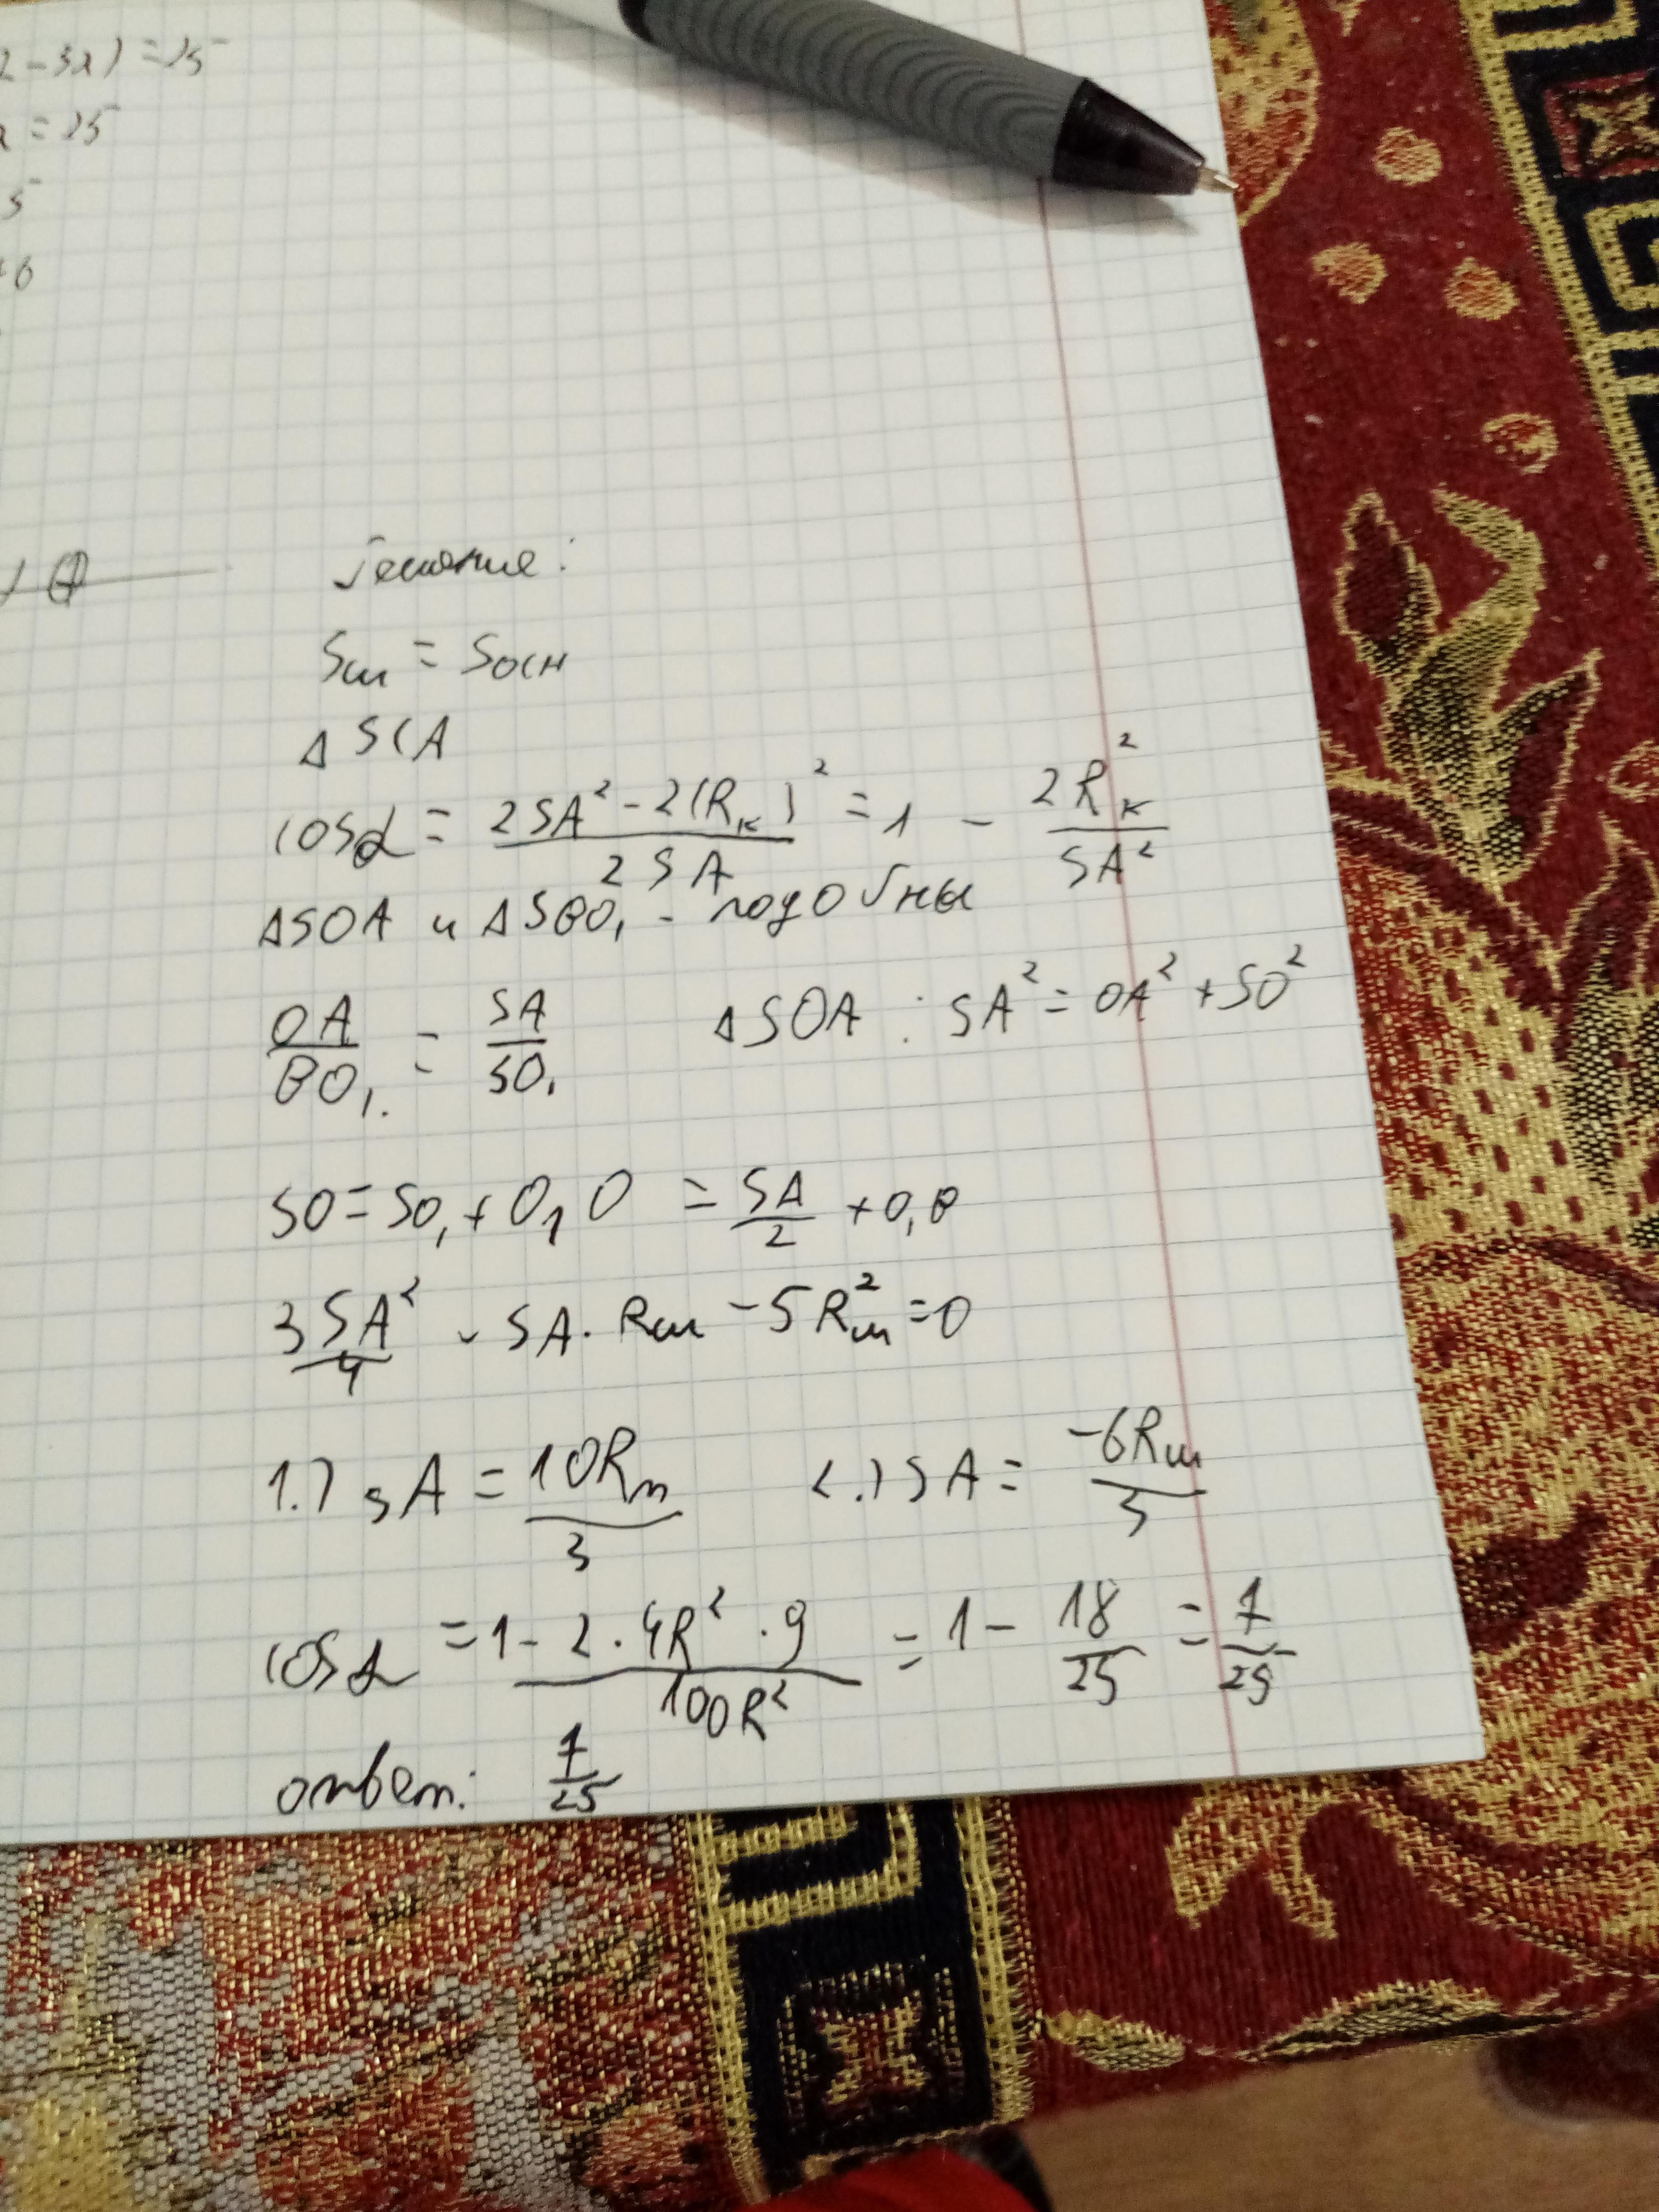 2-3x)=25
x=25
5
+6
Решение:
Sш = Sосн
Δ SCA
cosα = (2SA² - 2(Rк)²)/(2SA²) = 1 - 2Rк²/SA²
ΔSOA и ΔSBO₁ - подобны
OA/BO₁ = SA/SO₁ ΔSOA : SA² = OA² + SO²
SO = SO₁ + O₁O = SA/2 + O₁B
3SA²/4 - SA · Rш - 5Rш² = 0
1.) SA = 10Rш/3 2.) SA = -6Rш/3
cosα = 1 - 2·4R²·9/100R² = 1 - 18/25 = 7/25
ответ: 7/25